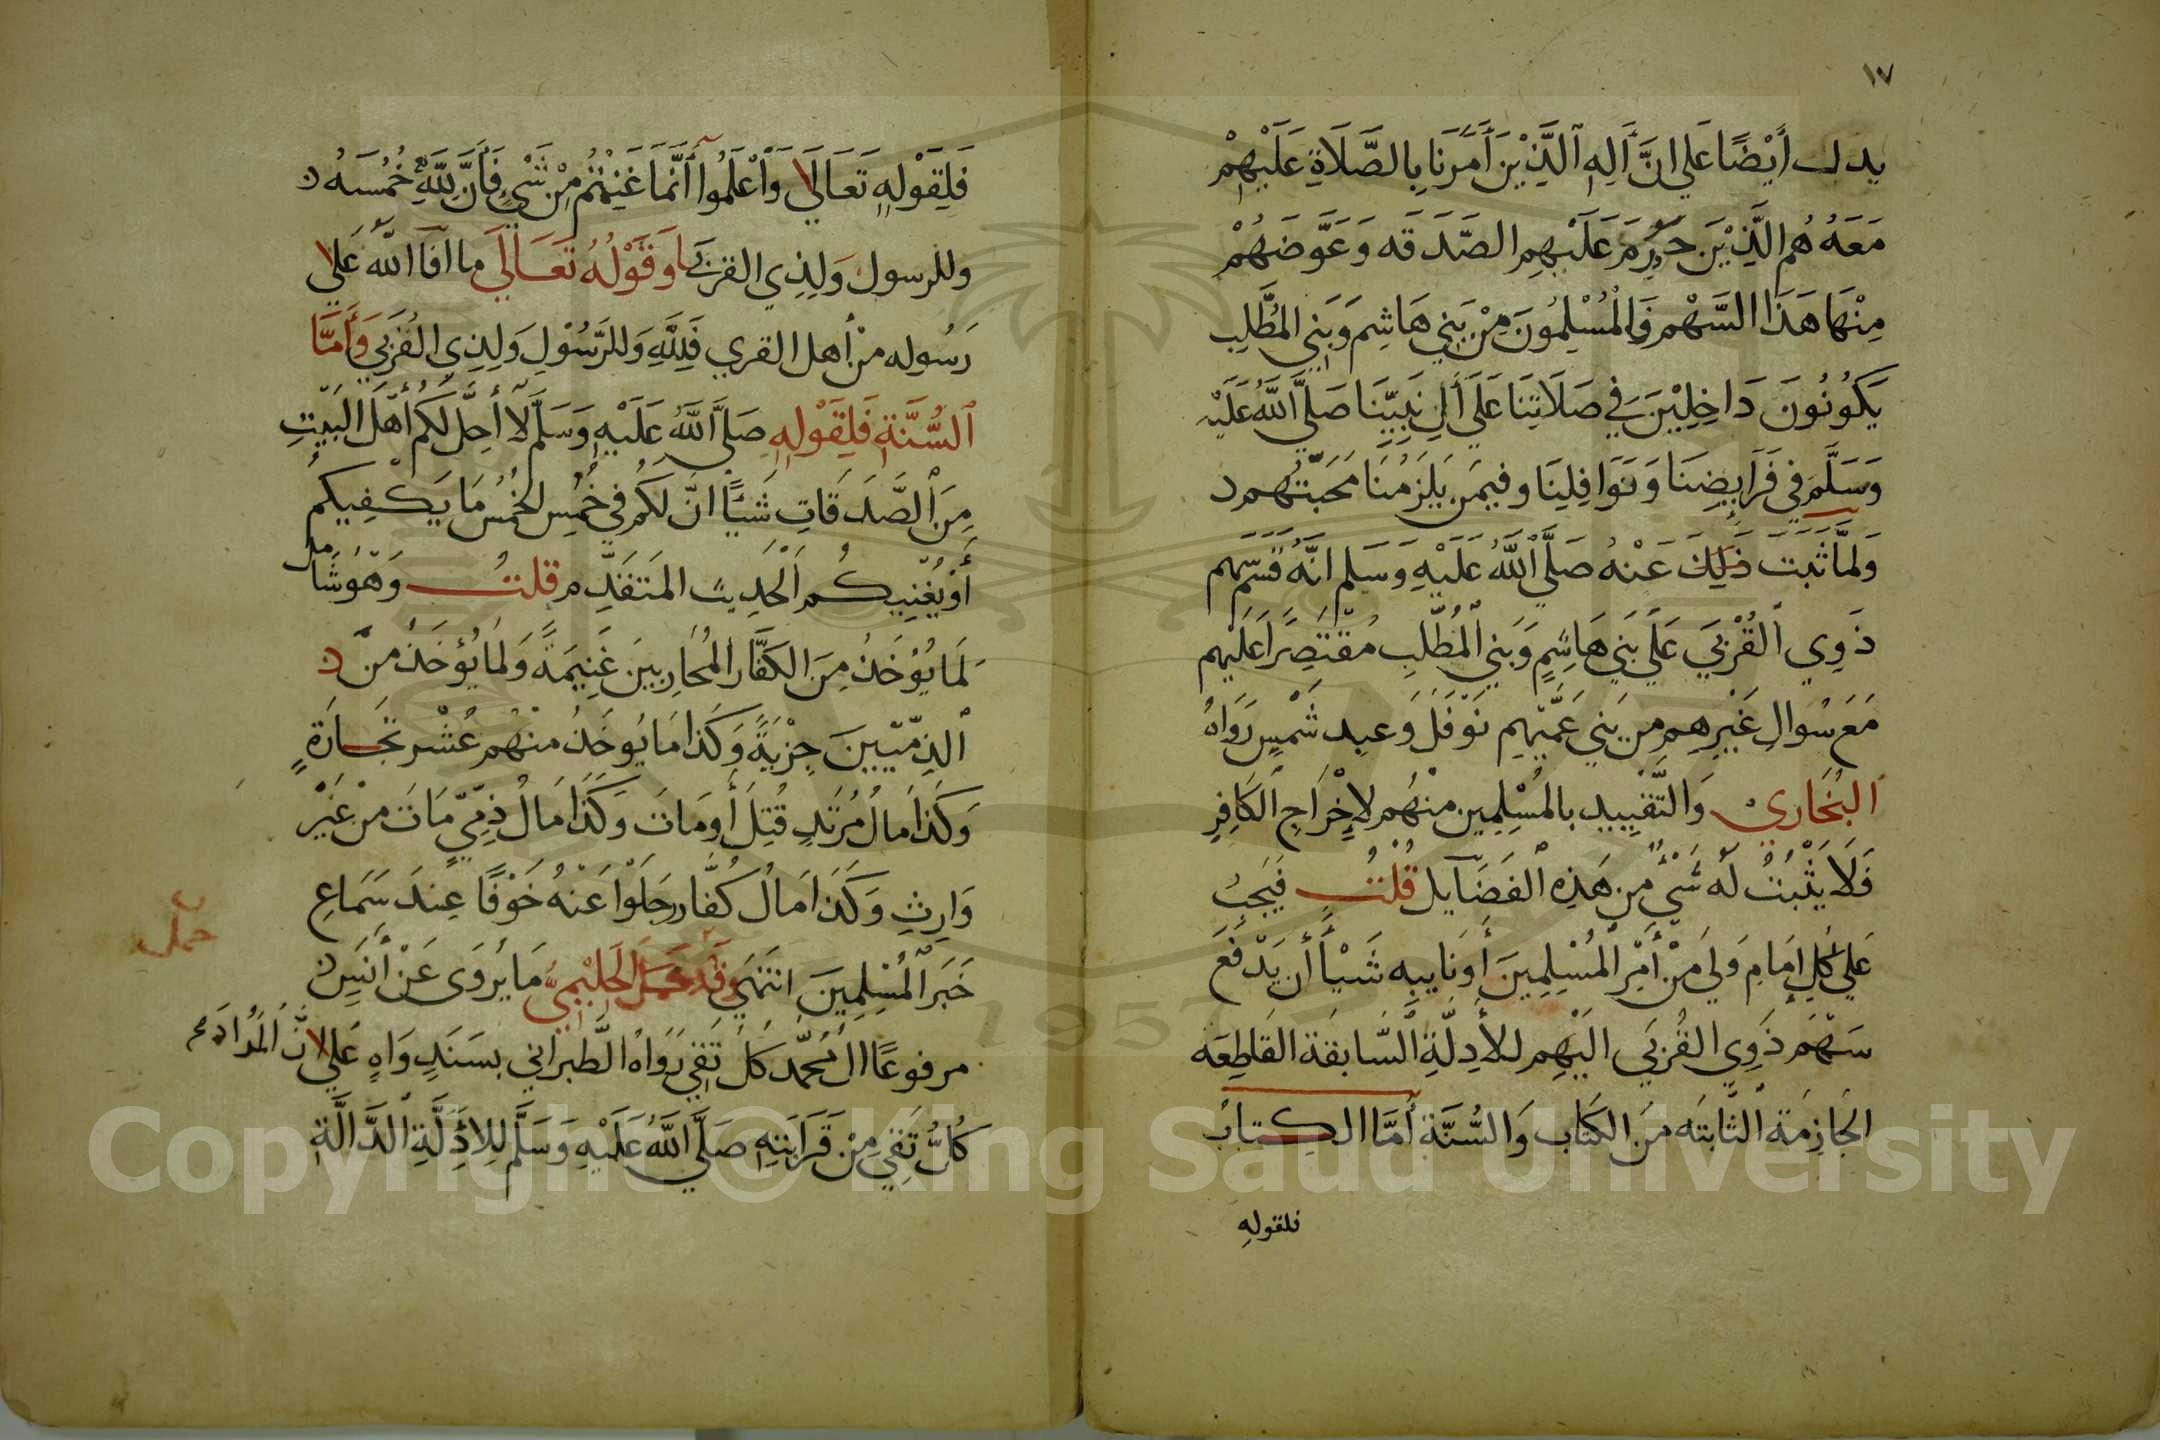 ١٧
يدل أَيْضًا عَلي انَّ أَلِهِ ٱلَّذِيْنَ أَمَرَنَا بِالصَّلَاةِ عَلَيْهِمْ
مَعَهُ هُم الَّذِيْنَ حَرَّمَ عَلَيْهِم الصَّدَقَه وَعَوَّضَهُمْ
مِنْهَا هَذَا السَّهْم فَالْمُسْلِمُونَ مِنْ بَنِي هَاشِمٍ وَبَنِي المُطَّلِبِ
يَكُونُونَ دَاخِلِيْنَ فِي صَلَاتِنَا عَلَي أَلِ نَبِيِّنَا صَلَّي اللَّهُ عَلَيْهِ
وَسَلَّمَ فِي فَرَايِضِنَا وَنَوَافِلِنَا وفيمَن يَلزَمُنَا مَحَبَّتُهم
وَلمَّا ثَبَتَ ذَلِكَ عَنْهُ صَلَّي ٱللَّهُ عَلَيْهِ وَسَلم انَّهُ قَسَّمَ سَهم
ذَوِي ٱلقُرْبَي عَلَي بَنِي هَاشِمٍ وَبَنِي ٱلْمُطَّلِبِ مُقْتَصِرًا عَلَيْهِم
مَعَ سُوَالِ غَيْرِهِم مِن بَنِي عَمِّهِم نَوْفَل وَعبد شَمْسٍ رَوَاهُ
ٱلبُخَاري وَالتَّقْيِيد بالمُسْلِمِين منْهُم لإِخْرَاجِ ٱلكَافِرِ
فَلَا يَثْبُتُ لَه شَيْءٌ مِن هَذِهِ ٱلفَضَآيل قُلْتُ فَيَجِبُ
عَلي كُلِ إِمَامٍ وَلِيَ مِنْ أَمْرِ ٱلْمُسْلِمِينَ أَونَايبِه شَيْأً أن يَدْفَعَ
سَهْمَ ذَوِي القُرْبَي الَيْهِم للأَدِلَّةِ ٱلسَّابِقَة القَاطِعَه
الجَازِمَة ٱلثَّابِتَه مَن الكِتَاب وَالسُّنَّة أَمَّا الكِتابُ
فلقولِهِ
فَلِقَوْلِهِ تَعَالَي وَٱعْلَمُوا أَنَّمَا غَنِمْتُم مِنْ شَيْءٍ فَأَنَّ لِلَّهِ خُمُسَهُ
وللرسول وَلِذِي القربَي وَقَوْلُهُ تَعَالَي ما آفآ اللّه عَلَي
رَسُوله منْ أهل القري فَلِلَّهِ وَللرَّسُوْلِ وَلِذِي القُرْبَي وَأَمَّا
ٱلسُّنَّة فَلِقَوْلِهِ صَلَّي اللَّهُ عَلَيْهِ وَسَلَّم لَا أُحِلُّ لَكُم أَهْلَ البَيْتِ
مِنَ ٱلصَّدَقَاتِ شَيْأً انَّ لَكُم فِي خُمُسِ الخُمُسِ مَا يَكْفِيكُمْ
أَوْيُغْنِيكُم ٱلْحَدِيث المتَقَدِّم قلتُ وَهَوَ شَامل
لَمَا يُوْخَذُ مِنَ الكَفَّار المُحَارِبينَ غَنِيمَةً وَلمَا يُؤخَذُ منَ
ٱلذِّمّيّينَ جِزْيَةً وَكَذَا مَا يُوخَذُ منْهُم عُشْر تجَارَةٍ
وَكَذَا مَالُ مُرْتَدٍ قُتِلَ أَو مَاتَ وَكَذَا مَالُ ذِمّيٍّ مَاتَ منْ غَيْرِ
وَارِثٍ وَكَذَا مَالُ كُفَّار جَلَوْا عَنْهُ خَوْفًا عِندَ سَمَاعِ
خَبَر ٱلْمُسْلِمِينَ انتَهَي وَقد حَمَلَ الحَلِيْمِيُّ مَا يُروَى عَنْ أَنَسٍ
حمل
مرفوعًا ال مُحَمَّد كلُ تَقي رَوَاهُ الطَّبرانِي بسَندٍ وَاهٍ عَلي انَّ المُرَادَ
كُلُّ تَقِي مِنْ قَرَابَتِهِ صَلَّي اللَّهُ عَلَيْهِ وَسَلَّم لِلاَدِلَّةِ ٱلدَّالَّةِ
Copyright © King Saud University
1957